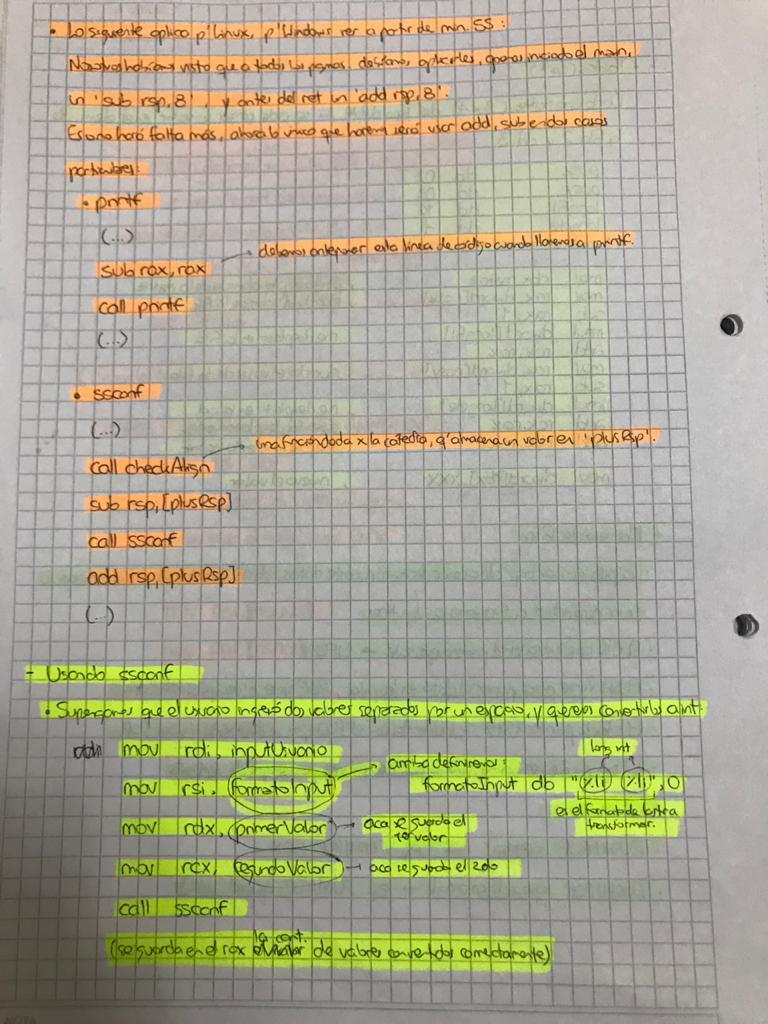 • Lo siguiente aplica p' Linux, p' Windows ver a partir de min. 55:
Nosotros habíamos visto que a todos los pgmas. debíamos aplicarles, apenas iniciado el main,
un 'sub rsp, 8', y antes del ret un 'add rsp, 8'.
Eso no hará falta más, ahora lo único que haremos será usar add, sub en dos casos
particulares:
• printf
(...)
sub rax, rax → debemos anteponer esta línea de código cuando llamemos a printf.
call printf
(...)
• sscanf
(...)
call checkAlign → una función dada x la cátedra, q' almacena un valor en 'plusRsp'.
sub rsp, [plusRsp]
call sscanf
add rsp, [plusRsp]
(...)
- Usando sscanf
• Supongamos que el usuario ingresó dos valores separados por un espacio, y queremos convertirlos a int:
mov rdi, inputUsuario
long int
mov rsi, formatoInput → arriba definiremos:
formatoInput db "%li %li", 0
es el formato de lo q'
transformar.
mov rdx, primerValor → acá se guarda el
1er valor
mov rcx, segundoValor → acá se guarda el 2do
call sscanf
(se guarda en el rax la cant. de valores convertidos correctamente)